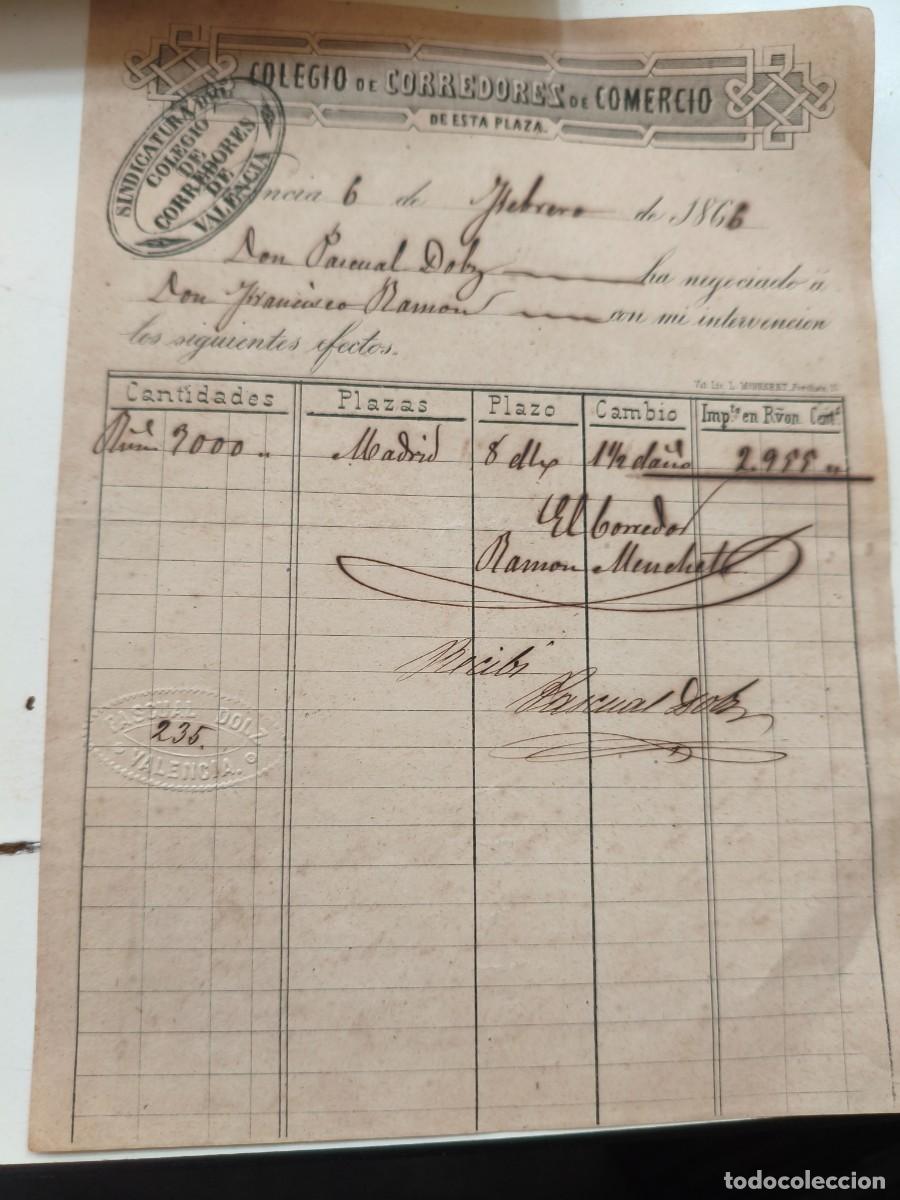 COLEGIO DE CORREDORES DE COMERCIO
DE ESTA PLAZA.
SINDICATURA DEL
COLEGIO
DE
CORREDORES
DE
VALENCIA
ncia 6 de Febrero de 1866
Don Pascual Dolz ha negociado á
Don Francisco Ramon con mi intervencion
los siguientes efectos.
Val. Lit. L.
Cantidades Plazas Plazo Cambio Imp.ᵗᵉ en Rvon. Cent.ˢ
3000 Madrid 8 1 1/2 daño 2.955
El Corredor
Ramon Menchet
Recibí
Pascual Dolz
PASCUAL DOLZ
235.
VALENCIA.
todocoleccion